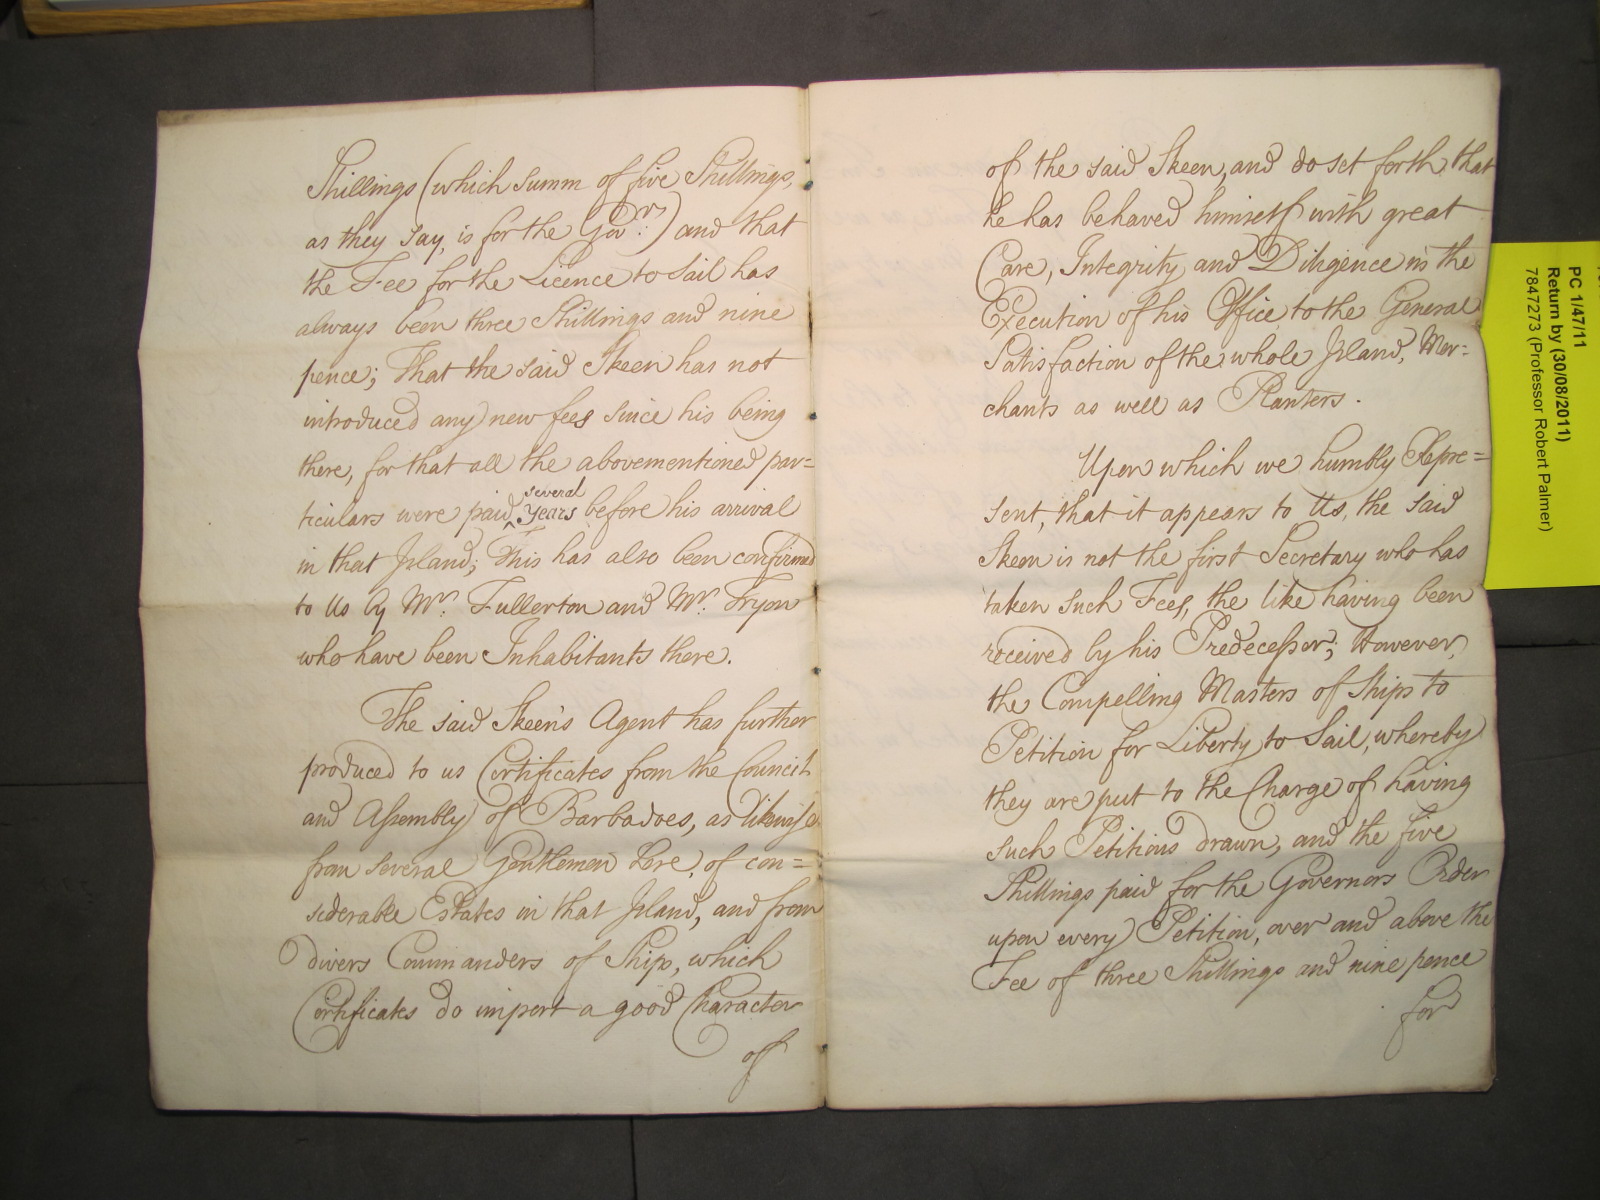 Shillings (which summ of five Shillings,
as they say, is for the Gov.rs) and that
the Fee for the Licence to Sail has
always been three Shillings and nine
pence; That the said Skeen has not
introduced any new fees since his being
there, for that all the abovementioned par=
several
ticulars were paid ^ Years before his arrival
in that Island; This has also been confirmed
to Us by Mr. Fullerton and Mr. Tryon
who have been Inhabitants there.
The said Skeen's Agent has further
produced to us Certificates from the Council
and Assembly of Barbadoes, as likewise
from several Gentlemen here, of con=
siderable Estates in that Island, and from
divers Commanders of Ships, which
Certificates do import a good Character
of
of the said Skeen, and do set forth, that
he has behaved himself with great
Care, Integrity and Diligence in the
Execution of his Office, to the General
Satisfaction of the whole Island, Mer=
chants as well as Planters.
Upon which we humbly Repre=
sent, that it appears to Us, the said
Skeen is not the first Secretary who has
taken such Fees, the like having been
received by his Predecessor; However,
the Compelling Masters of Ships to
Petition for Liberty to Sail, whereby
they are put to the Charge of having
such Petitions drawn, and the five
Shillings paid for the Governors Order
upon every Petition, over and above the
Fee of three Shillings and nine pence
for
PC 1/47/11
Return by (30/08/2011)
7847273 (Professor Robert Palmer)